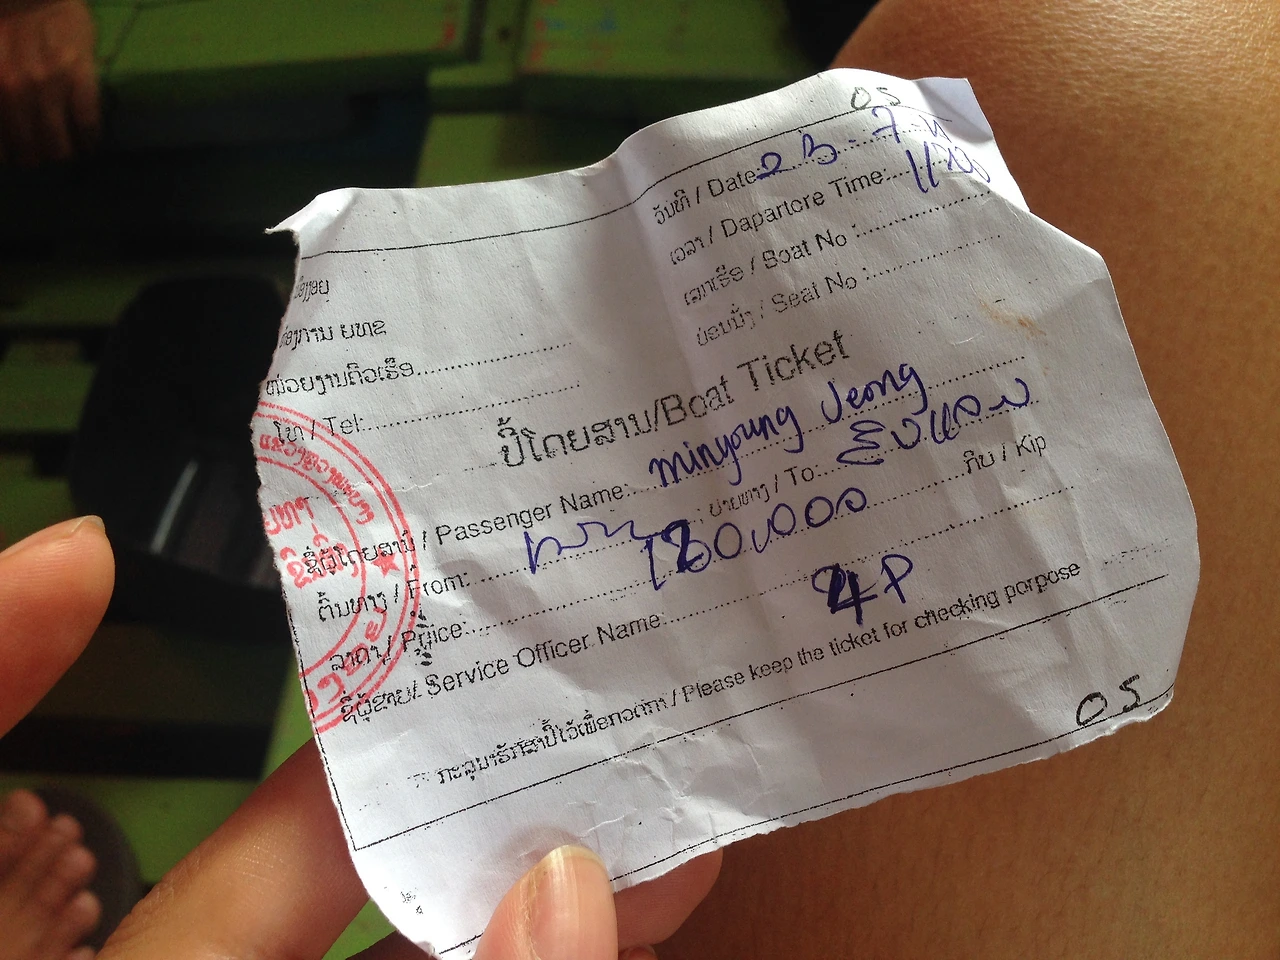 05
ວັນທີ / Date: 23 - 7 - 
ເວລາ / Daparture Time:
ເລກເຮືອ / Boat No :
ບ່ອນນັ່ງ / Seat No :
ໜ່ວຍງານຄິວເຮືອ
ໂທ / Tel:
ປີ້ໂດຍສານ/Boat Ticket
ຊື່ຜູ້ໂດຍສານ / Passenger Name: minyoung Jeong
ຕົ້ນທາງ / From: ປາຍທາງ / To:
ລາຄາ / Price: 180,000 ກີບ / Kip
ຊື່ຜູ້ຂາຍ/ Service Officer Name: 4P
ກະລຸນາຮັກສາປີ້ໄວ້ເພື່ອກວດກາ / Please keep the ticket for checking porpose
05